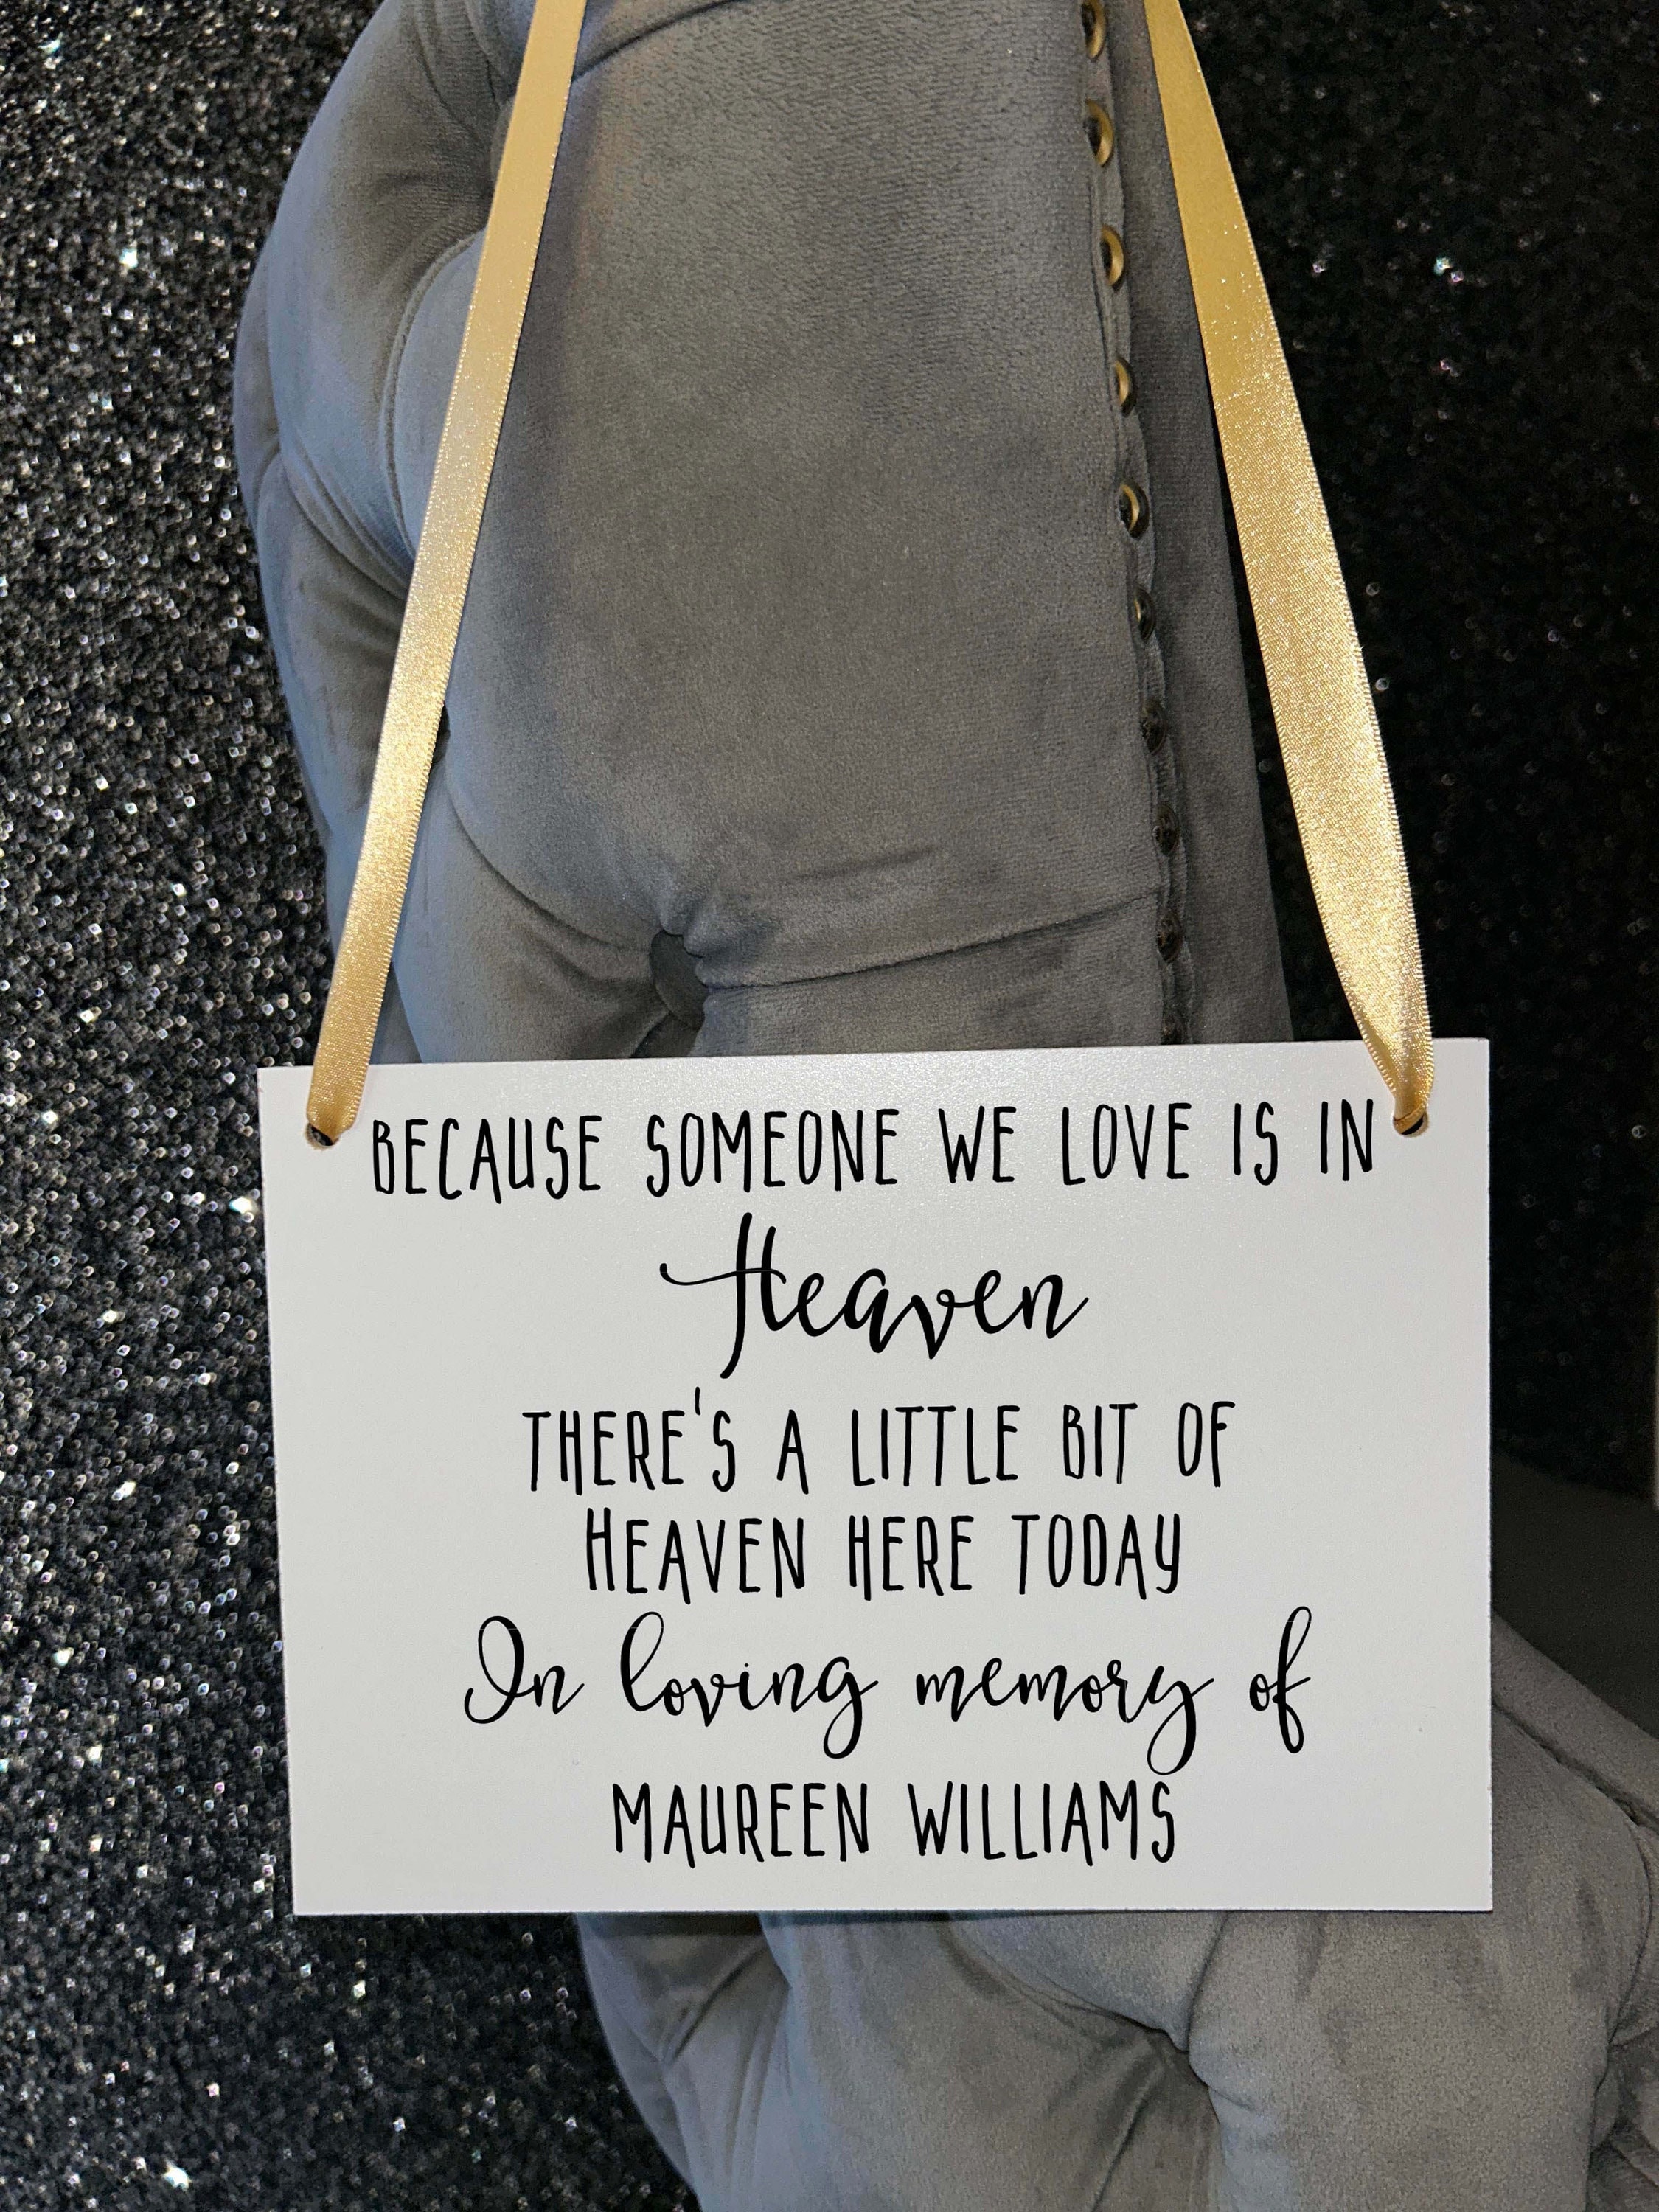 BECAUSE SOMEONE WE LOVE IS IN
Heaven
THERE'S A LITTLE BIT OF
HEAVEN HERE TODAY
In loving memory of
MAUREEN WILLIAMS